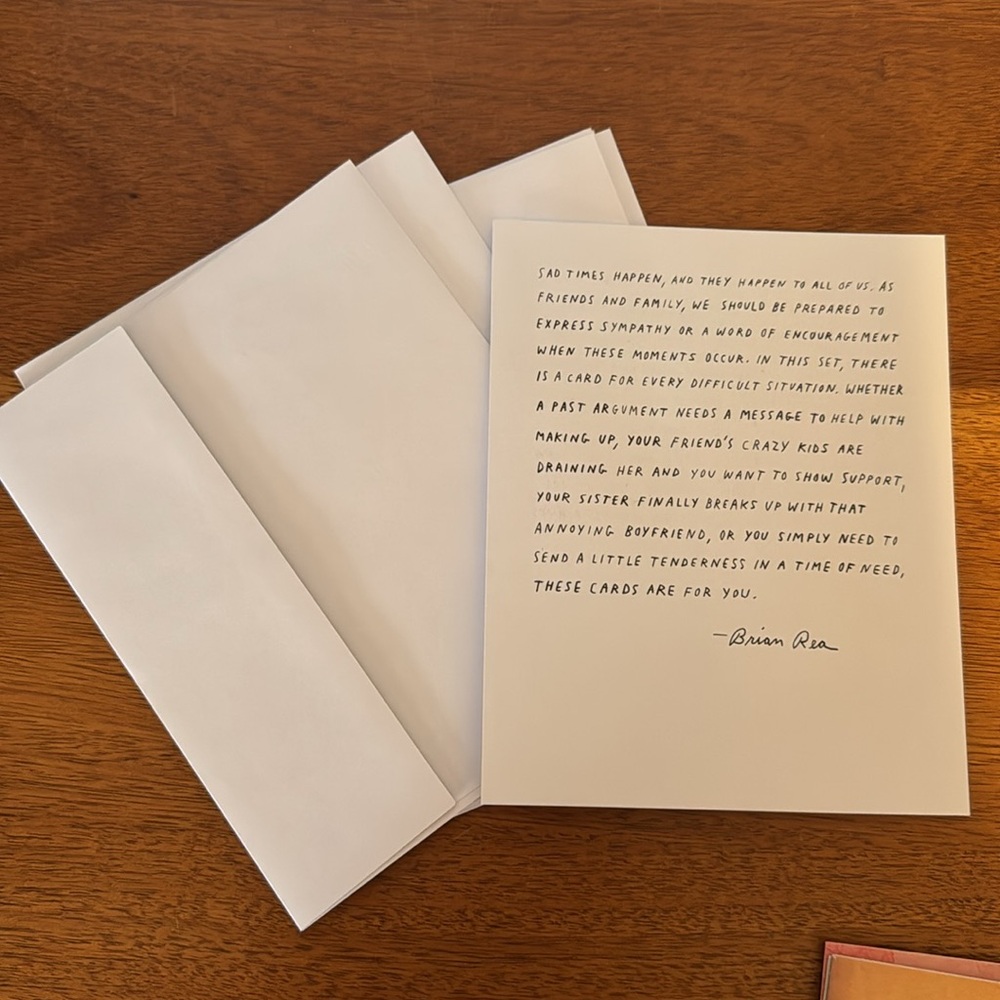 SAD TIMES HAPPEN, AND THEY HAPPEN TO ALL OF US. AS
FRIENDS AND FAMILY, WE SHOULD BE PREPARED TO
EXPRESS SYMPATHY OR A WORD OF ENCOURAGEMENT
WHEN THESE MOMENTS OCCUR. IN THIS SET, THERE
IS A CARD FOR EVERY DIFFICULT SITUATION. WHETHER
A PAST ARGUMENT NEEDS A MESSAGE TO HELP WITH
MAKING UP, YOUR FRIEND'S CRAZY KIDS ARE
DRAINING HER AND YOU WANT TO SHOW SUPPORT,
YOUR SISTER FINALLY BREAKS UP WITH THAT
ANNOYING BOYFRIEND, OR YOU SIMPLY NEED TO
SEND A LITTLE TENDERNESS IN A TIME OF NEED,
THESE CARDS ARE FOR YOU.
—Brian Rea